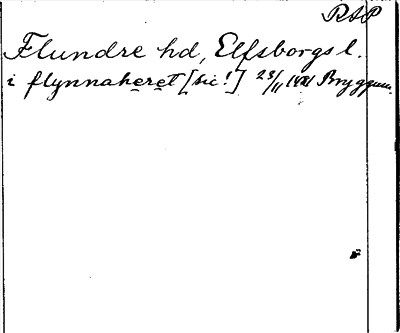 RAP
Flundre hd, Elfsborgs l.
i flynnaheret [sic!] 23/11 Bryggum.